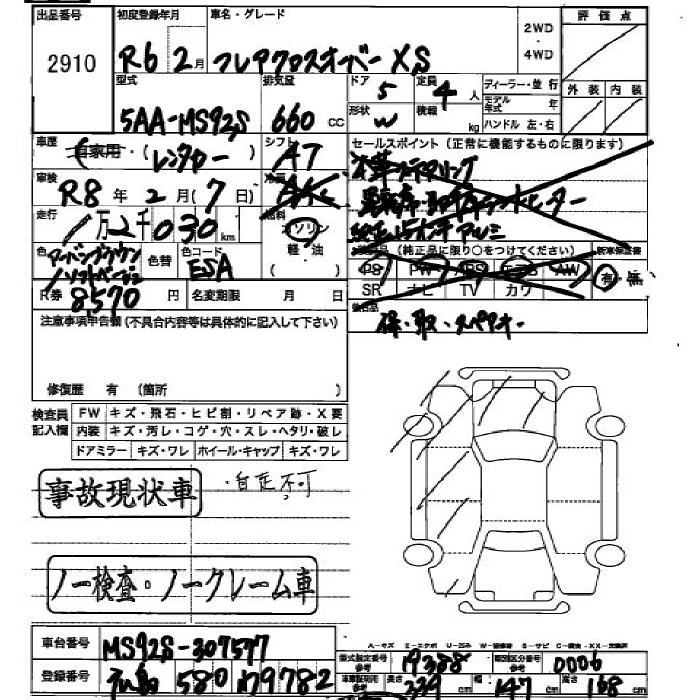 出品番号 初度登録年月 車名・グレード 評価点
2910 R6 2月 フレアクロスオーバー XS 2WD・4WD
型式 排気量 ドア 定員 ディーラー・並行 外装 内装
5AA-MS92S 660 CC 5 4人 モデル年式 年
形状 W 積載 kg ハンドル 左・右
車歴 自家用・(レンタカー) シフト AT セールスポイント(正常に機能するものに限ります)
車検 R8年2月(7日) 冷房 本革ステアリング
走行 1万2千030km 燃料 ガソリン・軽油 純正15インチアルミ
色 色替 色コード ESA (純正品に限り○をつけてください) 新車保証書
PS PW ABS AW 有・無
R券 8,570円 名変期限 月 日 SR ナビ TV カワ
注意事項申告欄(不具合内容等は具体的に記入して下さい) 保・取・スペアキー
修復歴 有 (箇所 )
検査員記入欄 FW キズ・飛石・ヒビ割・リペア跡・X要
内装 キズ・汚レ・コゲ・穴・スレ・ヘタリ・破レ
ドアミラー キズ・ワレ ホイール・キャップ キズ・ワレ
事故現状車 ・自走不可
ノー検査・ノークレーム車
車台番号 MS92S-307577
A-キズ E-エクボ U-凹ミ W-補修跡 S-サビ C-腐食
型式指定番号 参考 19388 類別区分番号 参考 0006
登録番号 580 9782 長さ 339cm 幅 147cm 高さ 168cm